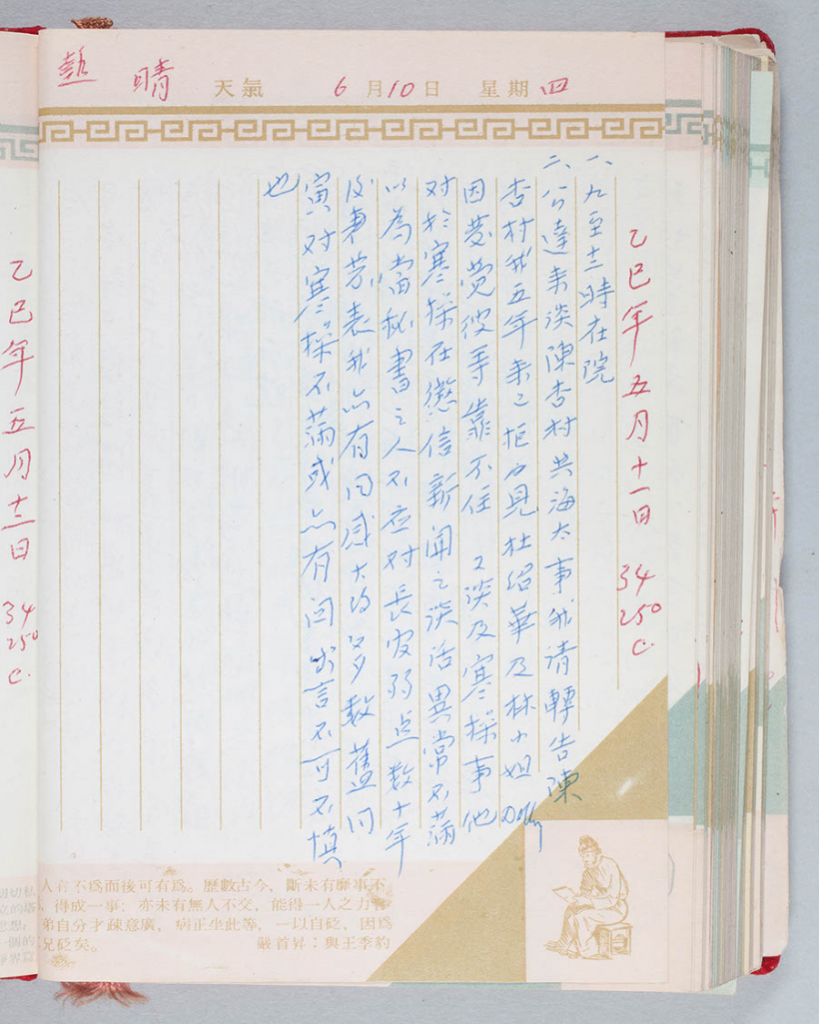 熱 晴 天氣 6月10日 星期四
乙巳年五月十一日 34 25° C.
一、九至十二時在院
二、公達来談陳杏村共海太事我请轉告陳
杏村我五年来已拒 見杜紹華及林小姐
因發覺彼等靠不住 又談及寒操事他
对於寒操在懲信新聞之談话異常不滿
以為當秘書之人不应对長官弱点数十年
後 表我亦有同感大约多数舊同
寅对寒操不满或亦有因出言不可不慎
也
人有不爲而後可有爲。歷數古今，斷未有靡事不
得成一事；亦未有無人不交，能得一人之力
弟自分才疎意廣，病正坐此等，一以自砭，因爲
兄砭矣。 嚴首昇：與王季豹
乙巳年五月十二日 34 25° C.